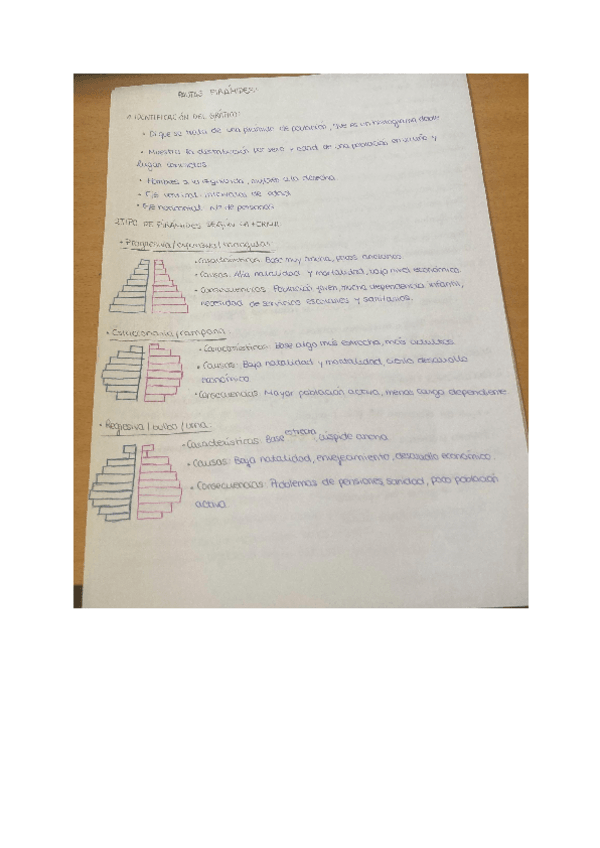 PAUTAS PIRÁMIDES:
1. IDENTIFICACIÓN DEL GRÁFICO:
• Di que se trata de una pirámide de población, que es un histograma doble
• Muestra la distribución por sexo y edad de una población en un año y
lugar concretos.
• Hombres a la izquierda, mujeres a la derecha.
• Eje vertical: intervalos de edad
• Eje horizontal: nº de personas
2. TIPO DE PIRÁMIDES SEGÚN LA FORMA
• Progresiva/expansiva/triangular:
• Características: Base muy ancha, pocos ancianos.
• Causas: Alta natalidad y mortalidad, bajo nivel económico.
• Consecuencias: Población joven, mucha dependencia infantil,
necesidad de servicios escolares y sanitarios.
• Estacionaria/campana:
• Características: Base algo más estrecha, más adultos
• Causas: Baja natalidad y mortalidad, cierto desarrollo
económico
• Consecuencias: Mayor población activa, menos carga dependiente
• Regresiva/bulbo/urna:
• Características: Base estrecha, cúspide ancha
• Causas: Baja natalidad, envejecimiento, desarrollo económico.
• Consecuencias: Problemas de pensiones, sanidad, poca población
activa.